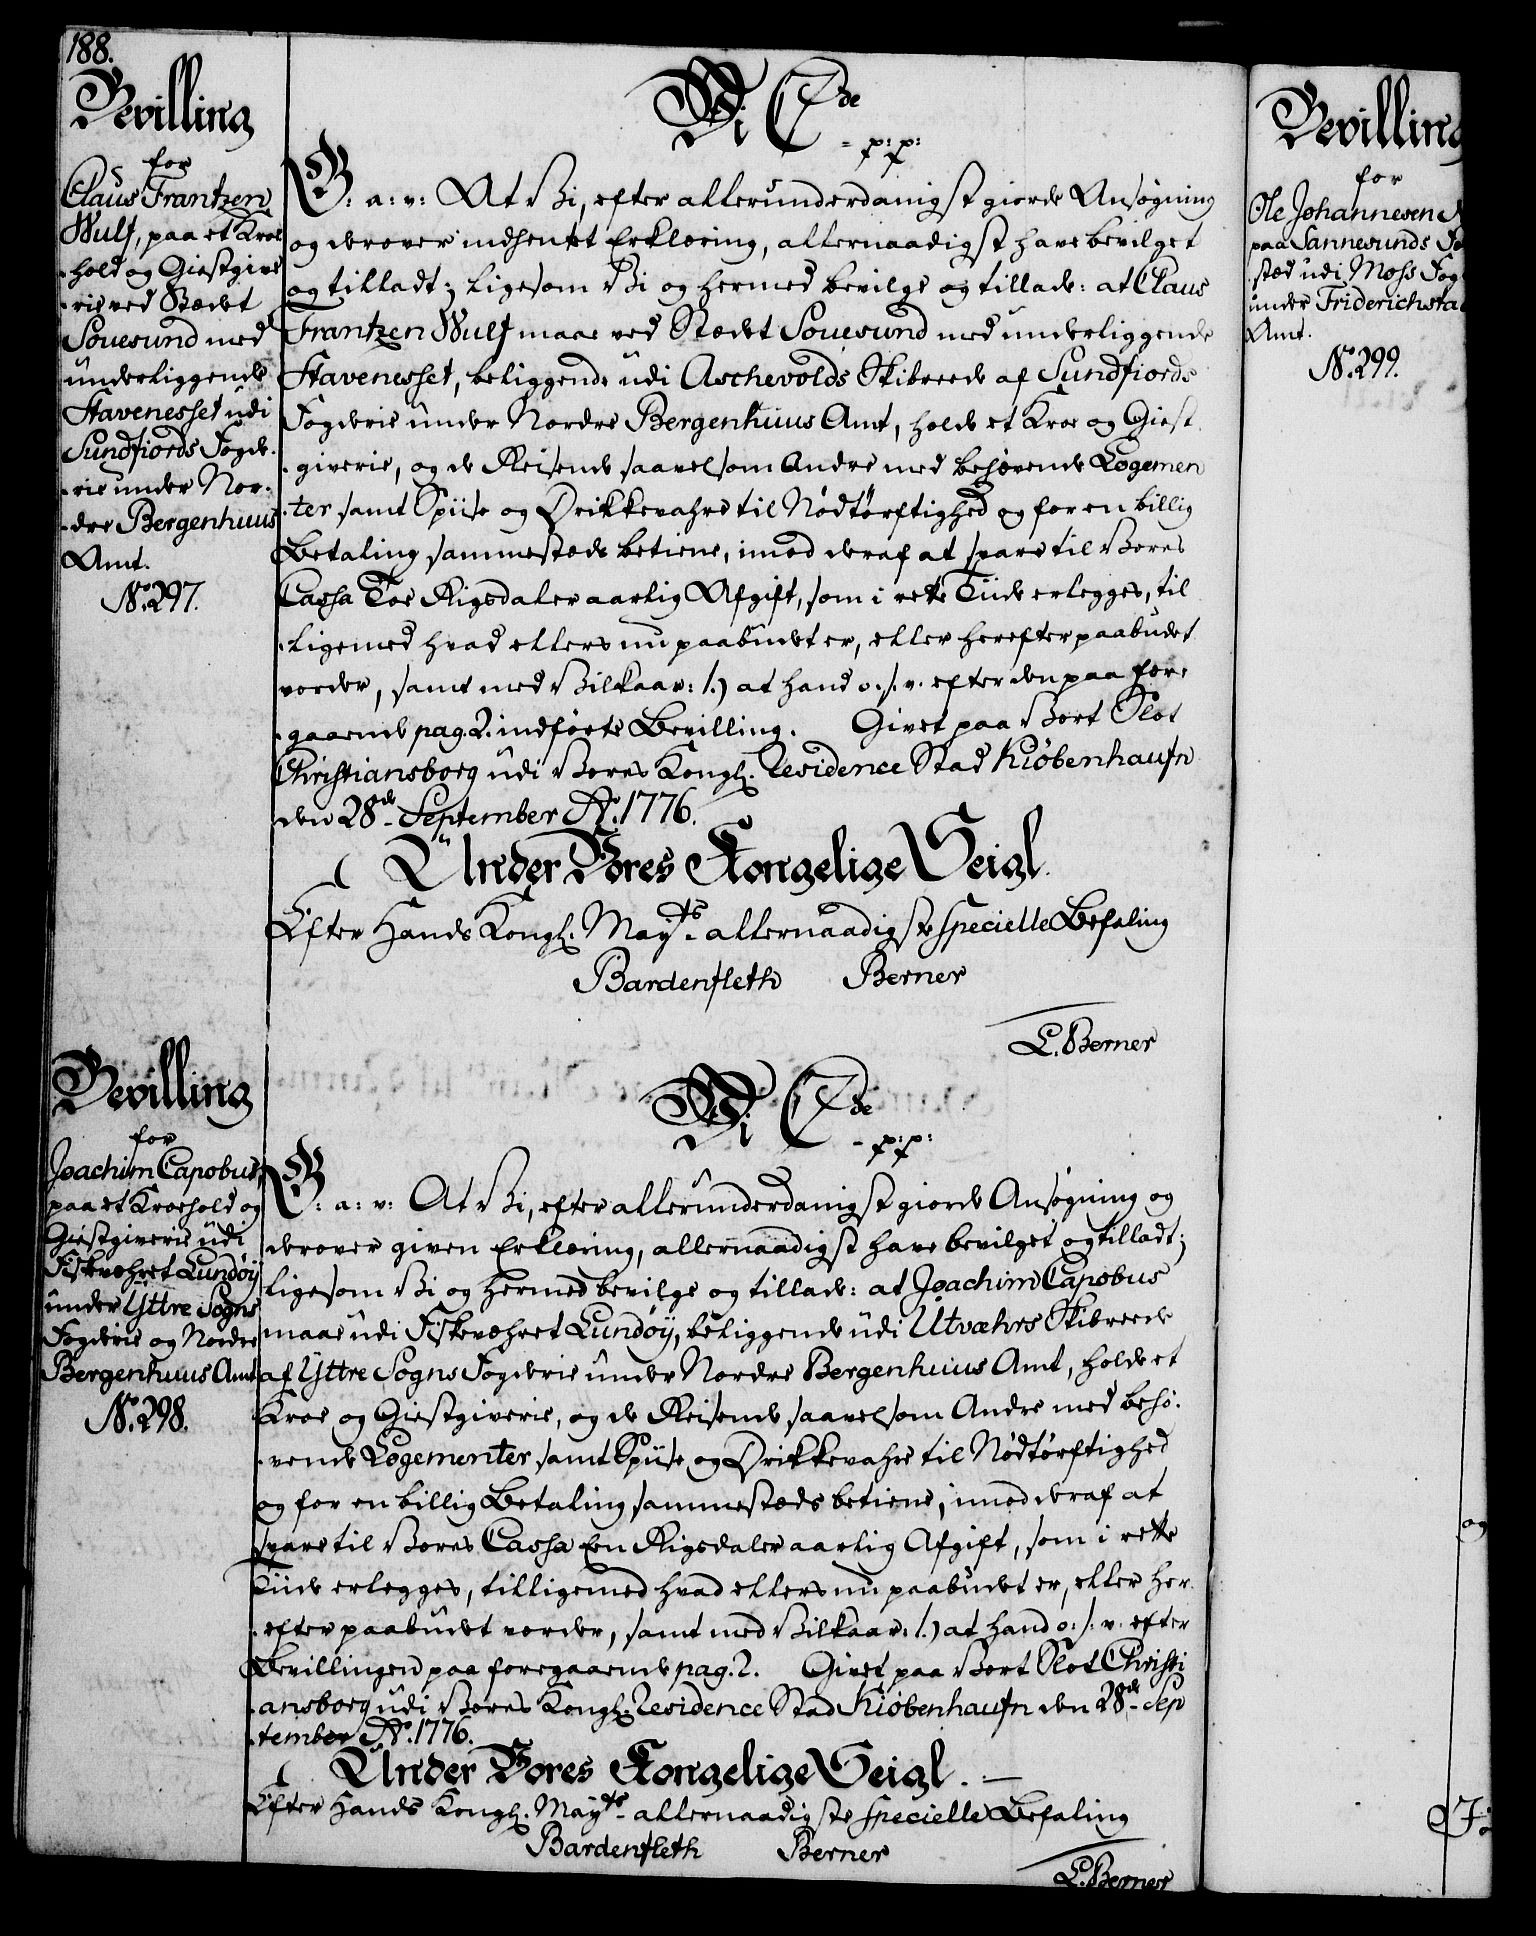 188.
Bevilling
for
Claus Frantzen
Wulf, paa et Kroe
-hold og Giestgive
-rie ved Stædet
Souesund med
underliggende
Stavenesset udi
Sundfiords Fogde-
-rie under Nor-
-dre Bergenhuus
Amt.
No. 297.
Vi C 7de
- p: p:
G: a: v: At Vi, efter allerunderdanigst giorde Ansøgning
og derover indhentet Erklæring, allernaadigst have bevilget
og tilladt; ligesom Vi og hermed bevilge og tillade: at Claus
Frantzen Wulf maae ved Stædet Souesund med underliggende
Stavenesset, beliggende udi Aschevolds Skibrede af Sundfiords
Fogderie under Nordre Bergenhuus Amt, holde et Kroe og Giest
-giverie, og de Reisende saavelsom Andre med behøvende Logemen
-ter samt Spiise og Drikkevahre til Nødtørftighed og for en billig
Betaling sammestæds betiene, imod deraf at svare til Vores
Cassa Toe Rigsdaler aarlig Afgift, som i rette Tiide erlegges, til
-ligemed hvad ellers nu paabudet er, eller herefter paabudet
vorder, samt med Vilkaar: 1.) at hand o. s. v. efter den paa fore-
-gaaende pag. 2. indførte Bevilling. Givet paa Vort Slot
Christiansborg udi Vores Kongl. Residence Stad Kiøbenhaufn
den 28de September Ao. 1776.
Under Vores Kongelige Seigl.
Efter Hands Kongl. Mayts allernaadigste specielle Befaling
Bardenfleth Berner
L. Berner
Bevilling
for
Joachim Capobus,
paa et Kroehold og
Giestgiverie udi
Fiskevæhret Lundøÿ
under Yttre Sogns
Fogderie og Nordre
Bergenhuus Amt
No. 298.
Vi C 7de
- p: p:
G: a: v: At Vi, efter allerunderdanigst giorde Ansøgning og
derover given Erklæring, allernaadigst have bevilget og tilladt;
ligesom Vi og hermed bevilge og tillade: at Joachim Capobus
maae udi Fiskevæhret Lundøÿ, beliggende udi Utvæhrs Skibrede
af Yttre Sogns Fogderie under Nordre Bergenhuus Amt, holde et
Kroe og Giestgiverie, og de Reisende saavelsom Andre med behø-
-vende Logementer samt Spiise og Drikkevahre til Nødtørftighed
og for en billig Betaling sammestæds betiene, imod deraf at
svare til Vores Cassa Een Rigsdaler aarlig Afgift, som i rette
Tiide erlegges, tilligemed hvad ellers nu paabudet er, eller her-
-efter paabudet vorder, samt med Vilkaar: 1.) at hand o: s: v: efter
Bevillingen paa foregaaende pag. 2. Givet paa Vort Slot Christi
-ansborg udi Vores Kongl. Residence Stad Kiøbenhaufn den 28de Sep
-tember Ao. 1776.
Under Vores Kongelige Seigl.
Efter Hands Kongl. Mayts allernaadigste specielle Befaling
Bardenfleth Berner
L. Berner
Bevilling
for
Ole Johannesen
paa Sannesunds
sted udi Moss Fog
under Friderichsta
Amt.
No. 299.
og